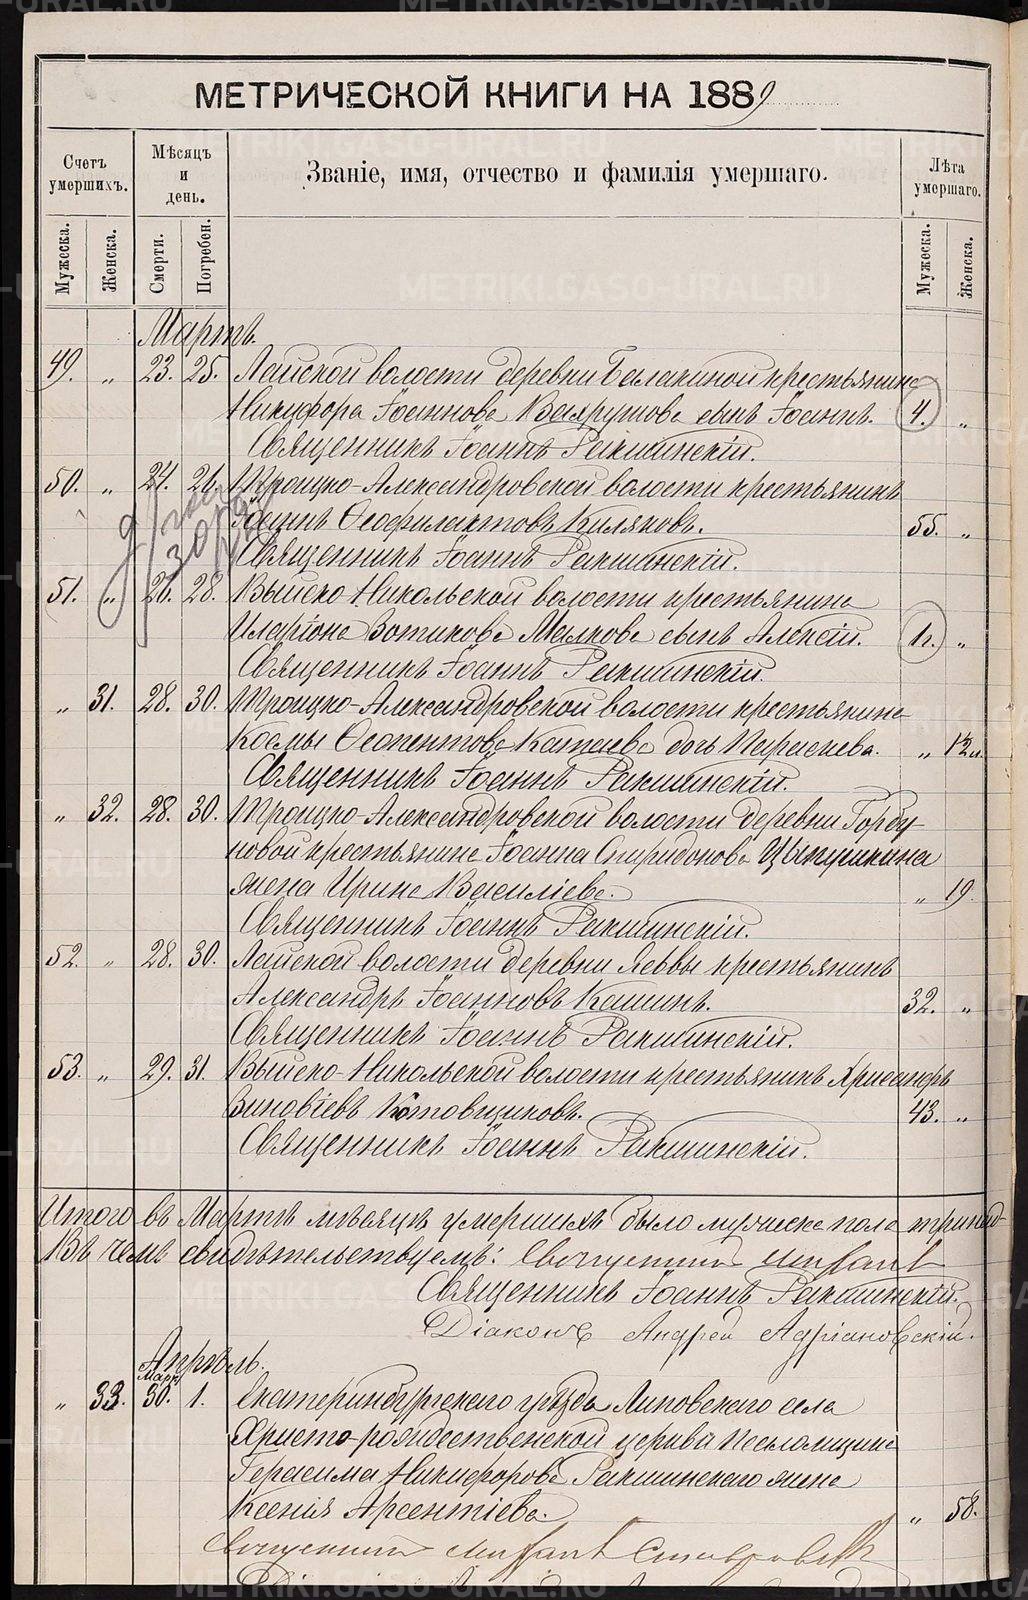 МЕТРИЧЕСКОЙ КНИГИ НА 1889
Счетъ умершихъ.
Мѣсяцъ и день.
Званіе, имя, отчество и фамилія умершаго.
Лѣта умершаго.
Мужеска. Женска. Смерти. Погребен. Мужеска. Женска.
Мартъ.
49. „ 23. 25. Лайской волости деревни Балакиной крестьянина
Никифора Іоаннова Вахрушова сынъ Іоаннъ. 4. „
Священникъ Іоаннъ Ракшинскій.
50. „ 24. 26. Троицко-Александровской волости крестьянинъ
Іоаннъ Ѳеофилактовъ Киляковъ. 55. „
Священникъ Іоаннъ Ракшинскій.
51. „ 26. 28. Выйско-Никольской волости крестьянина
Иларіона Зотикова Малкова сынъ Алексій. 1г. „
Священникъ Іоаннъ Ракшинскій.
„ 31. 28. 30. Троицко-Александровской волости крестьянина
Космы Ѳеопентова Катаева дочь Параскева. „ 12л.
Священникъ Іоаннъ Ракшинскій.
„ 32. 28. 30. Троицко-Александровской волости деревни Горбу-
новой крестьянина Іоанна Спиридонова Цыпушкина
жена Ирина Василіева. „ 19.
Священникъ Іоаннъ Ракшинскій.
52. „ 28. 30. Лайской волости деревни Леввы крестьянинъ
Александръ Іоанновъ Кашинъ. 32. „
Священникъ Іоаннъ Ракшинскій.
53. „ 29. 31. Выйско-Никольской волости крестьянинъ Хрисанѳъ
Зиновіевъ Котовщиковъ. 43. „
Священникъ Іоаннъ Ракшинскій.
Итого въ Мартѣ мѣсяцѣ умершихъ было мужеска пола тринад-
Въ чемъ свидѣтельствуемъ: Священникъ
Священникъ Іоаннъ Ракшинскій.
Діаконъ Андрей Адріановскій.
Апрѣль.
Март
„ 33. 30. 1. Екатеринбургскаго уѣзда Липовскаго села
Христо-рождественской церкви псаломщика
Герасима Никифорова Ракшинскаго жена
Ксенія Арсентіева. „ 58.
Священникъ